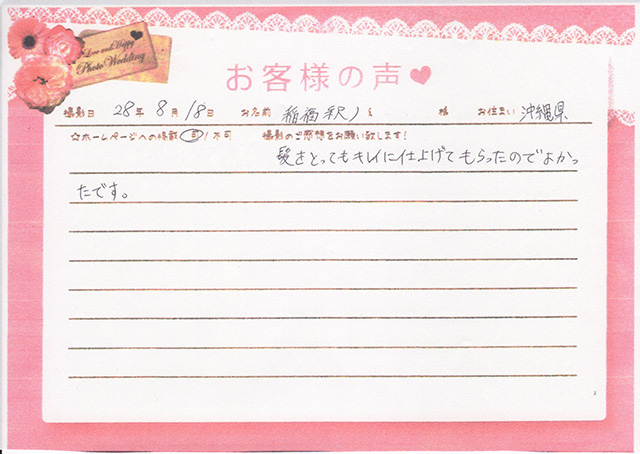 Love and Happy
Photo Wedding
お客様の声♥
撮影日 28年 8月 18日 お名前 稲福 様 お住まい 沖縄県
☆ホームページへの掲載 可/不可 撮影のご感想をお願い致します!
髪をとってもキレイに仕上げてもらったのでよかっ
たです。